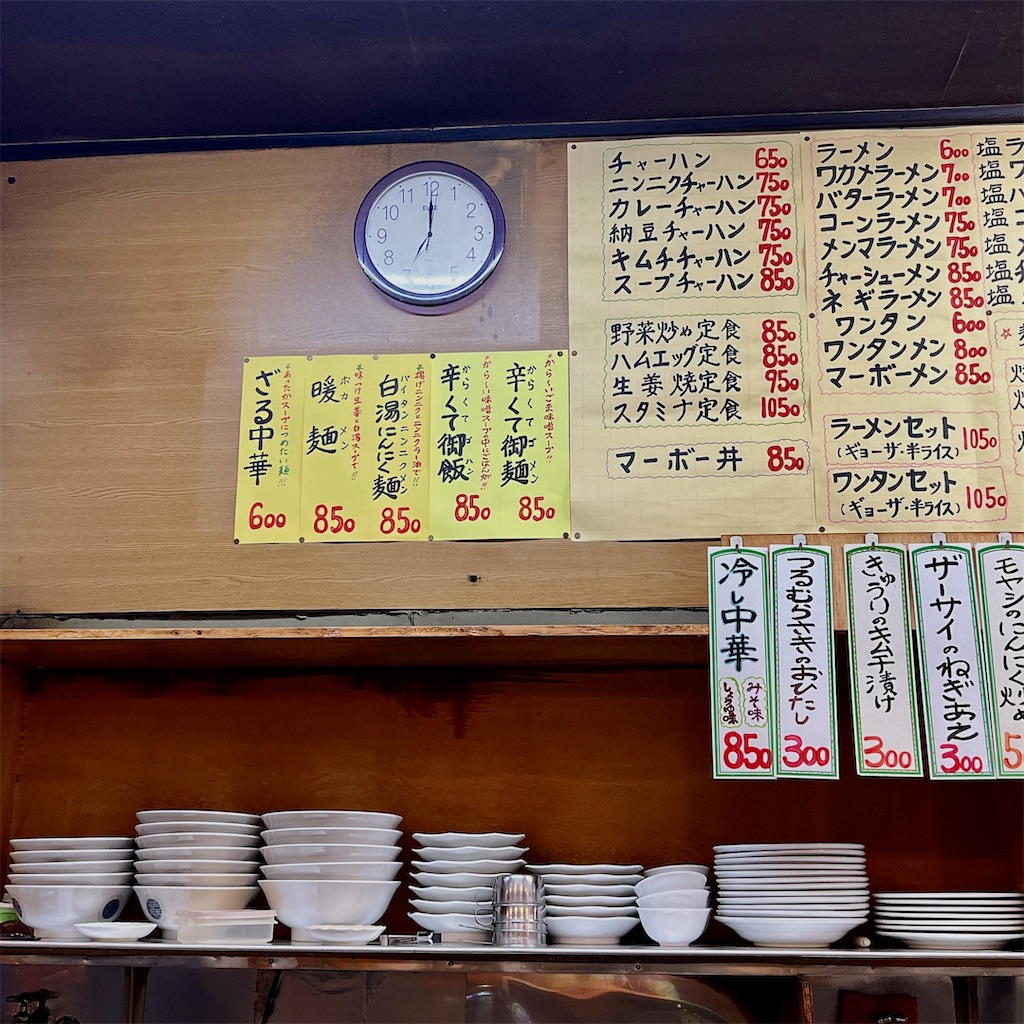 12
1
2
3
4
5
7
8
9
10
11
チャーハン 650
ニンニクチャーハン 750
カレーチャーハン 750
納豆チャーハン 750
キムチチャーハン 750
スープチャーハン 850
野菜炒め定食 850
ハムエッグ定食 850
生姜焼定食 950
スタミナ定食 1050
マーボー丼 850
ラーメン 600
ワカメラーメン 700
バターラーメン 700
コーンラーメン 750
メンマラーメン 750
チャーシューメン 850
ネギラーメン 850
ワンタン 600
ワンタンメン 800
マーボーメン 850
ラーメンセット 1050
(ギョーザ・半ライス)
ワンタンセット 1050
(ギョーザ・半ライス)
塩ラ
塩ワ
塩バ
塩コ
塩メ
塩チ
塩
からーいごま味噌スープ!!
辛くて御麺
からくてゴメン
850
からーい味噌スープの中にごはんが!!
辛くて御飯
からくてゴハン
850
揚げニンニクとニンニクラー油で!!
白湯にんにく麺
パイタンニンニクメン
850
味つけ生姜と白湯スープで!!
暖麺
ホカメン
850
あったかスープにつめたい麺!!!
ざる中華
600
冷し中華
みそ味
しょうゆ味
850
つるむらさきのおひたし
300
きゅうりのキムチ漬け
300
ザーサイのねぎあえ
300
モヤシのにんにく炒め
5